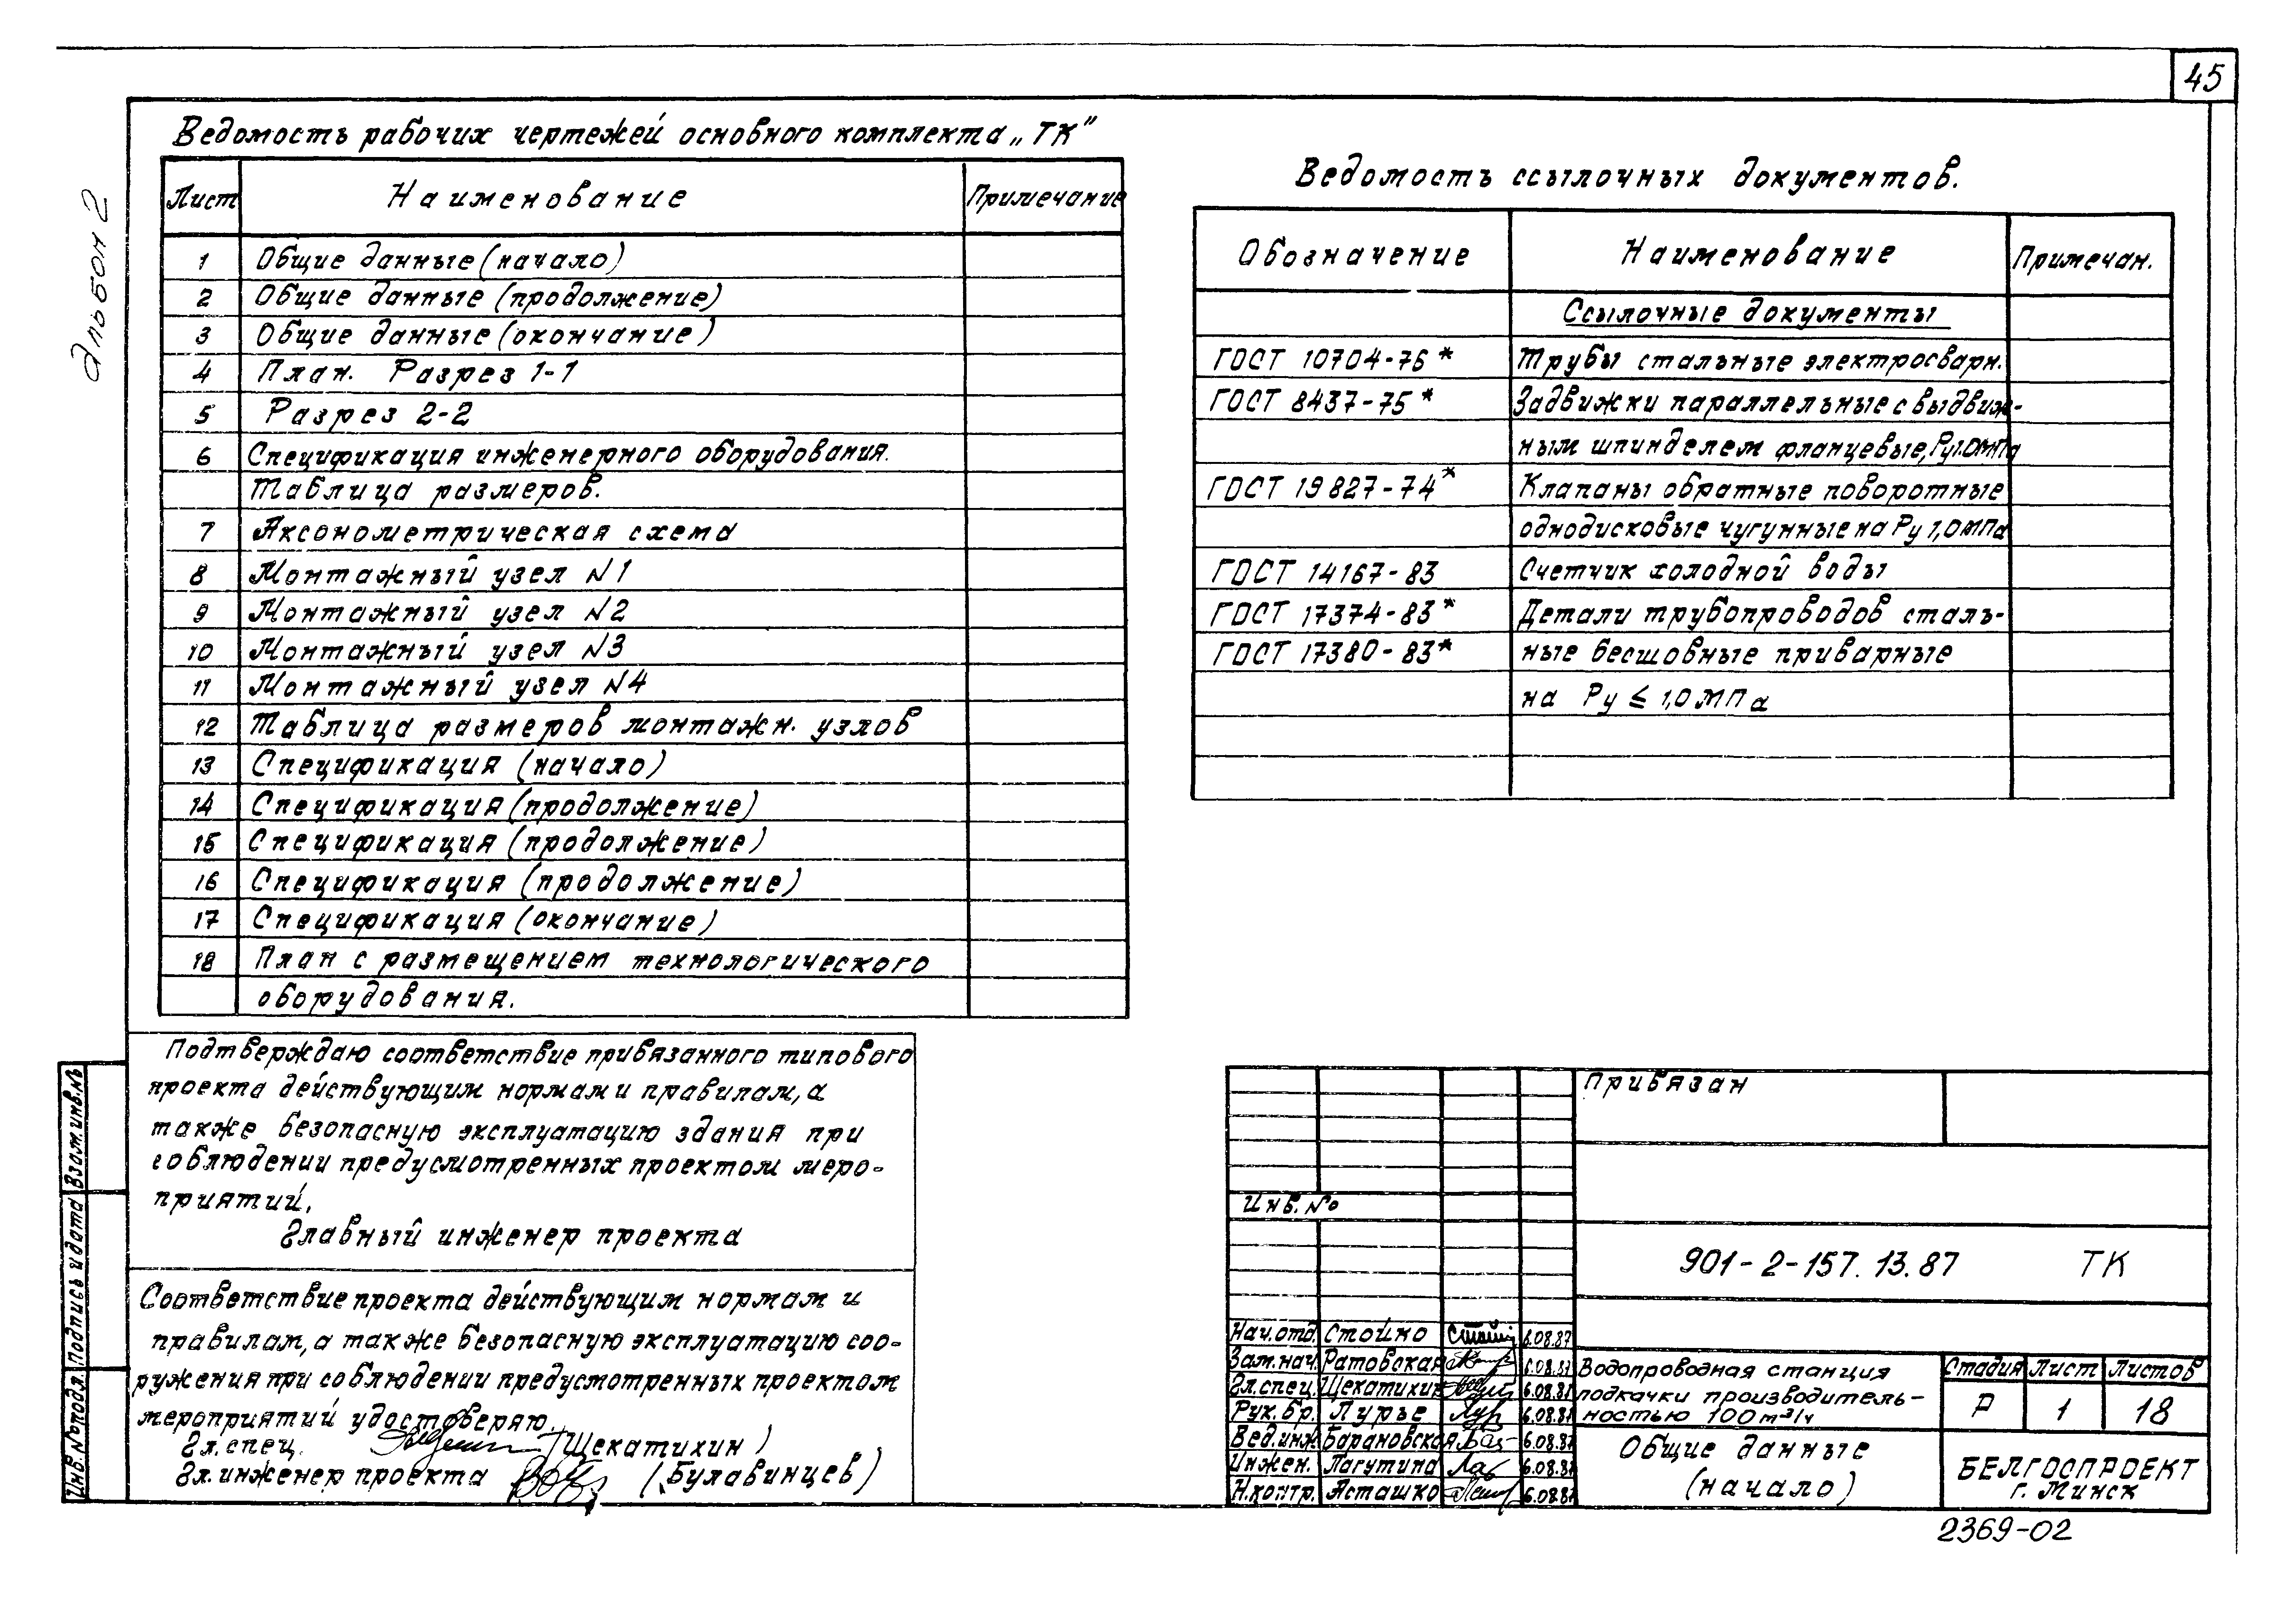 45
Альбом 2
Ведомость рабочих чертежей основного комплекта „ТК"
Лист Наименование Примечание
1 Общие данные (начало)
2 Общие данные (продолжение)
3 Общие данные (окончание)
4 План. Разрез 1-1
5 Разрез 2-2
6 Спецификация инженерного оборудования.
Таблица размеров.
7 Аксонометрическая схема
8 Монтажный узел N1
9 Монтажный узел N2
10 Монтажный узел N3
11 Монтажный узел N4
12 Таблица размеров монтажн. узлов
13 Спецификация (начало)
14 Спецификация (продолжение)
15 Спецификация (продолжение)
16 Спецификация (продолжение)
17 Спецификация (окончание)
18 План с размещением технологического
оборудования.
Ведомость ссылочных документов.
Обозначение Наименование Примечан.
Ссылочные документы
ГОСТ 10704-76* Трубы стальные электросварн.
ГОСТ 8437-75* Задвижки параллельные с выдвиж-
ным шпинделем фланцевые, Ру1.0мпа
ГОСТ 19827-74* Клапаны обратные поворотные
однодисковые чугунные на Ру 1,0мПа
ГОСТ 14167-83 Счетчик холодной воды
ГОСТ 17374-83* Детали трубопроводов сталь-
ГОСТ 17380-83* ные бесшовные приварные
на Ру ≤ 1,0мПа
Подтверждаю соответствие привязанного типового
проекта действующим нормам и правилам, а
также безопасную эксплуатацию здания при
соблюдении предусмотренных проектом меро-
приятий.
Главный инженер проекта
Соответствие проекта действующим нормам и
правилам, а также безопасную эксплуатацию соо-
ружения при соблюдении предусмотренных проектом
мероприятий удостоверяю
Гл.спец. (Щекатихин)
Гл.инженер проекта (Булавинцев)
Инв.№подл. Подпись и дата Взам.инв.№
Привязан
Инв.№
901-2-157.13.87 ТК
Нач.отд. Стойко 6.08.87
Зам.нач. Ратовская 6.08.87
Гл.спец. Щекатихин 6.08.87
Рук.бр. Лурье 6.08.87
Вед.инж. Барановская 6.08.87
Инжен. Лагутина 6.08.87
Н.контр. Асташко 6.08.87
Водопроводная станция
подкачки производитель-
ностью 100м³/ч
Стадия Лист Листов
Р 1 18
Общие данные
(начало)
БЕЛГОСПРОЕКТ
г. Минск
2369-02